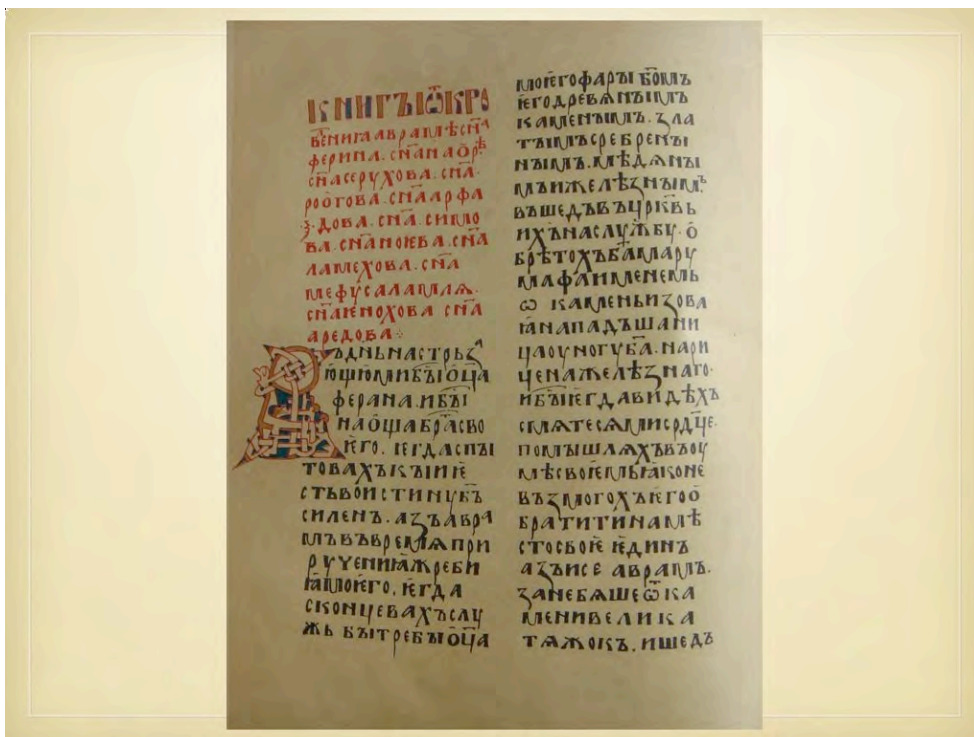 КНИГЪІѾКРО
ВЕНИꙖАВРАМѢСН҃А
ФЕРИНА. СН҃АНАОРѢ
СН҃АСЕРУХОВА. СН҃А.
РООГОВА. СН҃ААРФА
Ꙁ. ДОВА. СН҃А. СИМО
ВА. СН҃АНОѤВА. СН҃А
ЛАМЕХОВА. СН҃А
МЕФУСАЛАМЛѦ.
СН҃АѤНОХОВА СН҃А
АРЕДОВА
ВЪДНЬНАСТРЬꙀ
ЮЩЮМИБЪІОЦ҃А
ФЕРАНА. ИБЪІ
НАОЩАБРАСВО
ѤГО. ѤГДАСПЪІ
ТОВАХЪКЪІИѤ
СТЬВОИСТИНУБ҃Ъ
СИЛЕНЪ. АꙀЪАВРА
МЪВЪВРЕМѦПРИ
РУЧЕНИꙖЖРЕБИ
ꙖМОѤГО. ѤГДА
СКОНЦЕВАХЪСЛУ
ЖЬБЪІТРЕБЪІОЦ҃А
МОѤГОФАРЪІ БО҃МЪ
ѤГОДРЕВѦНЪІМЪ
КАМЕНЪІМЪ. ꙀЛА
ТЪІМЪСРЕБРЕНЪІ
НЫМЪ. МѢДѦНЪІ
МЪИЖЕЛѢꙀНЪІМЪ
ВЪШЕДЪВЪЦР҃КВЬ
ИХЪНАСЛУЖБУ. О
БРѢТОХЪБ҃АМАРУ
МАФАИМЕНЕМЬ
Ѡ КАМЕНЬИꙀОВА
ꙖНАПАДЪШАНИ
ЦАОУНОГУБ҃А. НАРИ
ЧЕНАЖЕЛѢꙀНАГО
ИБЪІѤГДАВИДѢХЪ
СМѦТЕСѦМИСРДЦ҃Е.
ПОМЪІШЛѦХЪВЪОУ
МѢСВОѤМЬꙖКОНЕ
ВЪꙀМОГОХЪѤГОО
БРАТИТИНАМѢ
СТОСВОѤ ѤДИНЪ
АꙀЪИСЕ АВРАМЪ.
ꙀАНЕБѦШЕѾКА
МЕНИВЕЛИКА
ТѦЖОКЪ. ИШЕДЪ